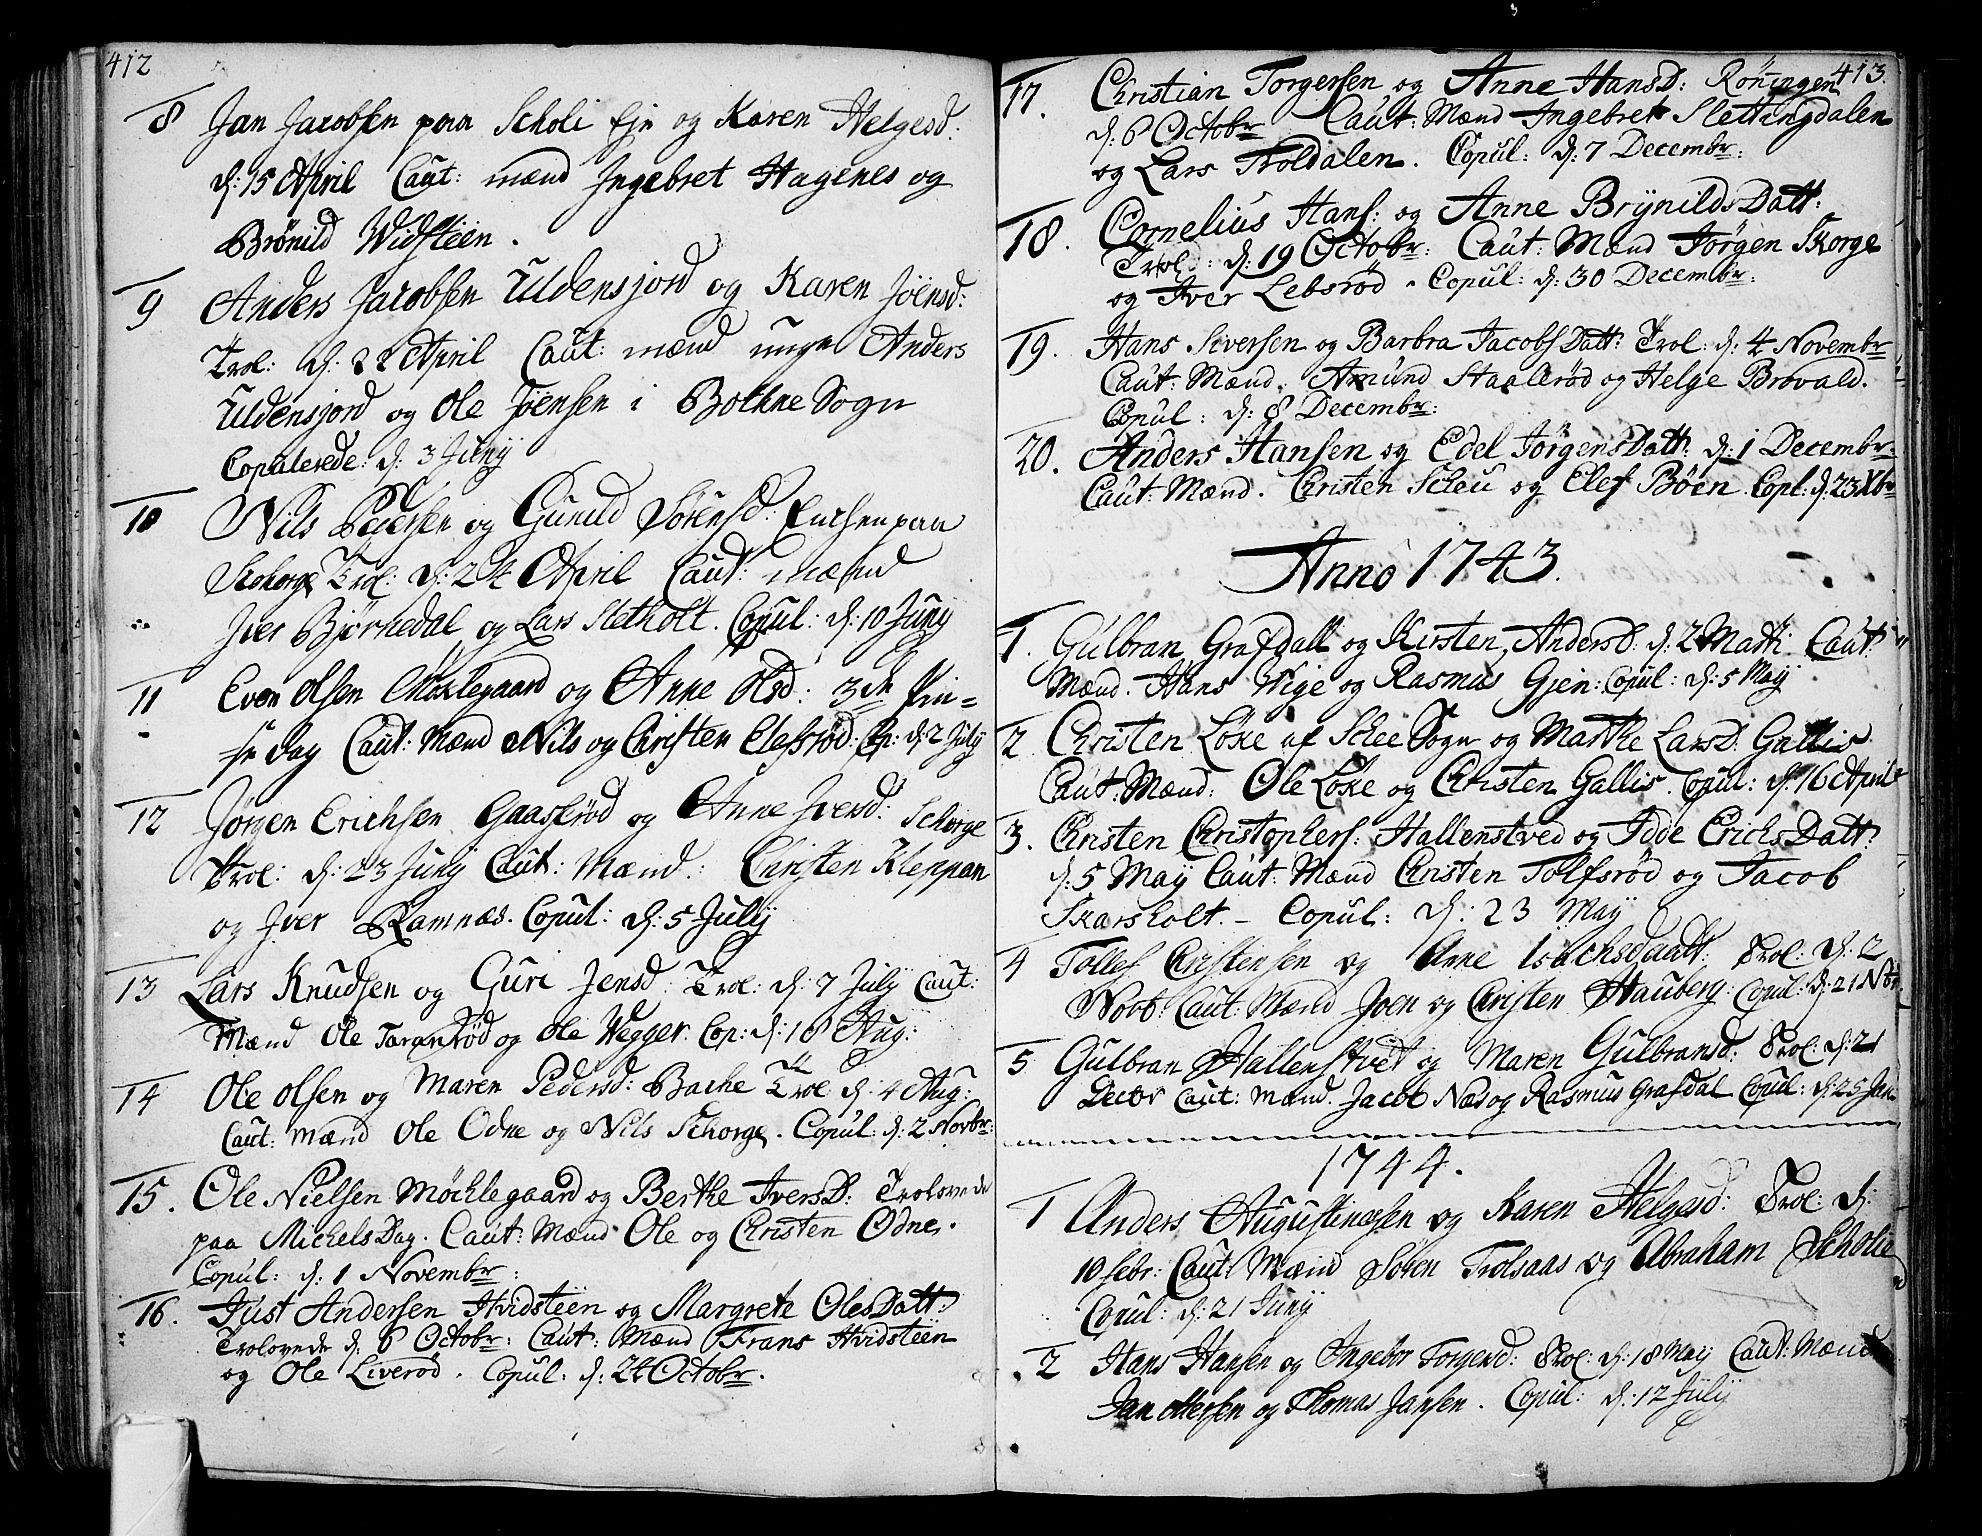 412
8 Jan Jacobsen paa Scholi Eje og Karen Helgesd:
d: 15 April Caut: mænd Ingebret Hagenes og
Brönild Widsteen.
9 Anders Jacobsen Uldensjord og Karen Jöensd:
Trol: d: 22 April Caut: mænd unge Anders
Uldensjord og Ole Jöensen i Bothne Sogn
Copulerede d: 3 Junÿ
10 Nils Pedersen og Gunild Sörensd: Enchen paa
Schorge Trol: d: 24 April Caut: mænd
Iver Björnedal og Lars Stetholt. Copul: d: 10 Junÿ
11 Even Olsen Möxlegaard og Anne Olsd: 3de Pin=
se dag Caut: Mænd Nils og Christen Elefsröd. Cop: d: 2 Julÿ
12 Jörgen Erichsen Gaaseröd og Anne Iversd: Schorge
Trol: d: 23 Junÿ Caut: Mænd: Christen Kleppan
og Iver Ramnæs. Copul: d: 5 Julÿ
13 Lars Knudsen og Guri Jensd: Trol: d: 7 Julÿ Caut:
Mænd Ole Taranröd og Ole Wegger. Cop: d: 18 Aug:
14 Ole Olsen og Maren Pedersd: Bache Trol d: 4 Aug:
Caut: Mænd Ole Odne og Nils Schorge. Copul: d: 2 Novbr:
15. Ole Nielsen Möchlegaard og Berthe Iversd: Trolovede
paa Michels Dag. Caut: Mænd Ole og Christen Odne.
Copul: d: 1 Novembr:
16. Just Andersen Hvidsteen og Margrete OlesDatt:
Trolovede d: 6 Octobr: Caut: Mænd Frans Hvidsteen
og Ole Liveröd. Copul: d: 24 Octobr.
413.
17. Christian Torgersen og Anne Hansd: Röningen
d: 6 Octobr Caut: Mænd Ingebret Slettingdalen
og Lars Troldalen. Copul: d: 7 Decembr:
18. Cornelius Hans: og Anne BrÿnildsDatt:
Trol: d: 19 Octobr: Caut: Mænd Jörgen Skorge
og Iver Lebsröd. Copul: d: 30 Decembr:
19. Hans Siversen og Barbra JacobsDatt: Trol: d: 4 Novembr
Caut: Mænd. Amund Staalleröd og Helge Brovald.
Copul: d: 8 Decembr:
20. Anders Hansen og Edel JörgensDatt: d: 1 Decembr.
Caut: Mænd. Christen Scheu og Elef Böen. Copl: d: 23 Xbr
Anno 1743.
1. Gulbran Grafdall og Kirsten Andersd: d: 2 Marti: Caut:
Mænd. Hans Wige og Rasmus Gjen: Copul: d: 5 Maÿ
2 Christen Löxe af Schee Sogn og Marthe Larsd: Gallis
Caut: Mænd: Ole Löxe og Christen Gallis. Copul: d: 16 April
3. Christen Christophers: Hallenstved og Idde ErichsDatt:
d: 5 Maÿ Caut: Mænd Christen Tolfsröd og Jacob
Skarsholt. - Copul: d: 23 Maÿ
4 Tollef Christensen og Anne Isachsdaatt: Trol: d: 2
Novb: Caut: Mænd Joen og Christen Hauberg: Copul: d: 21 Nbr.
5 Gulbran Hallenstvet og Maren Gulbransd: Trol: d: 21
Decbr Caut: Mænd. Jacob Næs og Rasmus Grafdal Copul: d: 25 Jan.
1744.
1 Anders Augustinæsen og Karen Helgesd: Trol: d:
10 Febr: Caut: Mænd Sören Trolsaas og Abraham Scholie
Copul: d: 21 Junÿ
2 Hans Hansen og Ingebor Torgersd: Trol: d: 18 Maÿ Caut: Mænd
Jan Ottersen og Thomas Jansen. Copul: d: 12 Julÿ